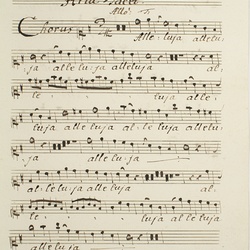 Allo
Chorus Alleluja allelu
ja alleluja alleluja al
le luja alle
luja alleluja alleluja allelu
ja alleluja
alleluja alleluja al
le luja alleluja
luja alleluja